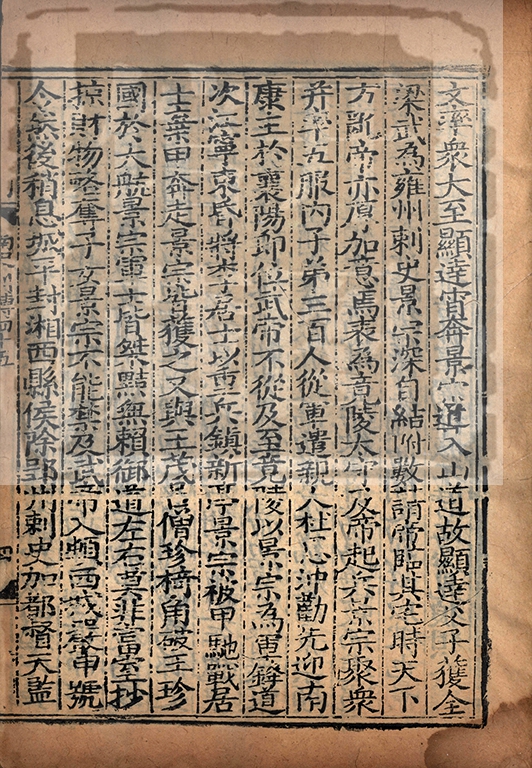 文率衆大至顯達宵奔景宗道入山道故顯達父子獲全
梁武為雍州刺史景宗深自結附數請帝臨其宅時天下
方亂帝亦厚加意焉表為竟陵太守及帝起兵景宗聚衆
并率五服内子弟三百人從軍遣親人杜思沖勸先迎南
康王於襄陽即位武帝不從及至竟陵以景宗為軍鋒道
次江寧東昏將李居士以重兵鎮新亭景宗被甲馳戰居
士棄甲奔走景宗皆獲之又與王茂呂僧珍掎角破王珍
國於大航景宗軍士皆桀黠無賴御道左右莫非富室抄
掠財物略奪子女景宗不能禁及武帝入頓西城嚴申號
令然後稍息城平封湘西縣侯除郢州刺史加都督天監